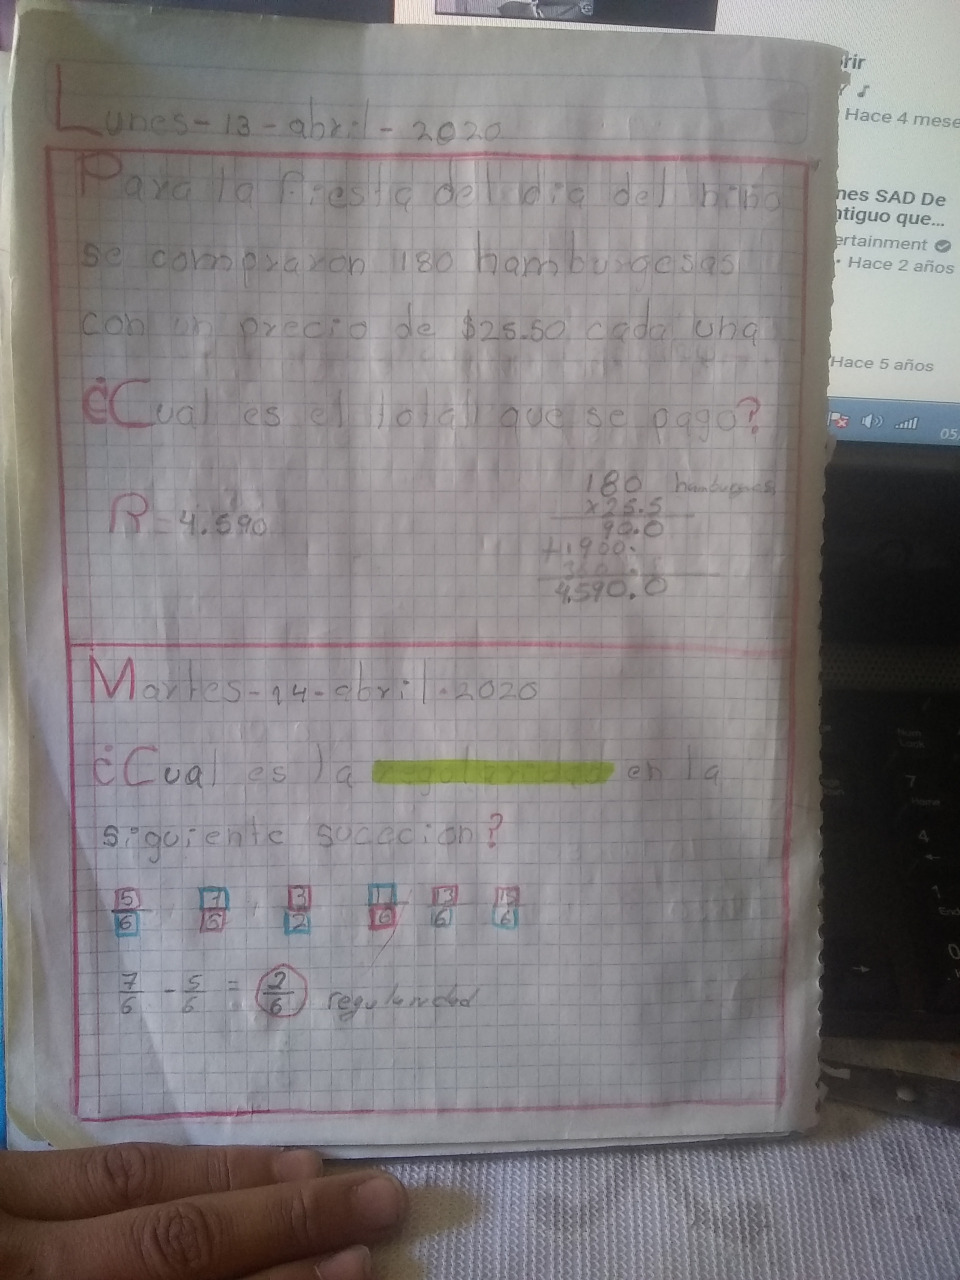 Lunes-13-abril-2020
Para la fiesta del dia del niño
se compraron 180 hamburgesas
con un precio de $25.50 cada una
¿Cual es el total que se pago?
R=4.590
180 hamburgesas
x25.5
90.0
+1900.
4590.0
Martes-14-abril-2020
¿Cual es la regularidad en la
siguiente sucecion?
5/6 7/6 3/2 11/6 13/6 15/6
7/6 - 5/6 = 2/6 regularidad
rir
Hace 4 mese
nes SAD De
ntiguo que...
ertainment
Hace 2 años
Hace 5 años
05
Num
Lock
7
Home
4
1
End
0